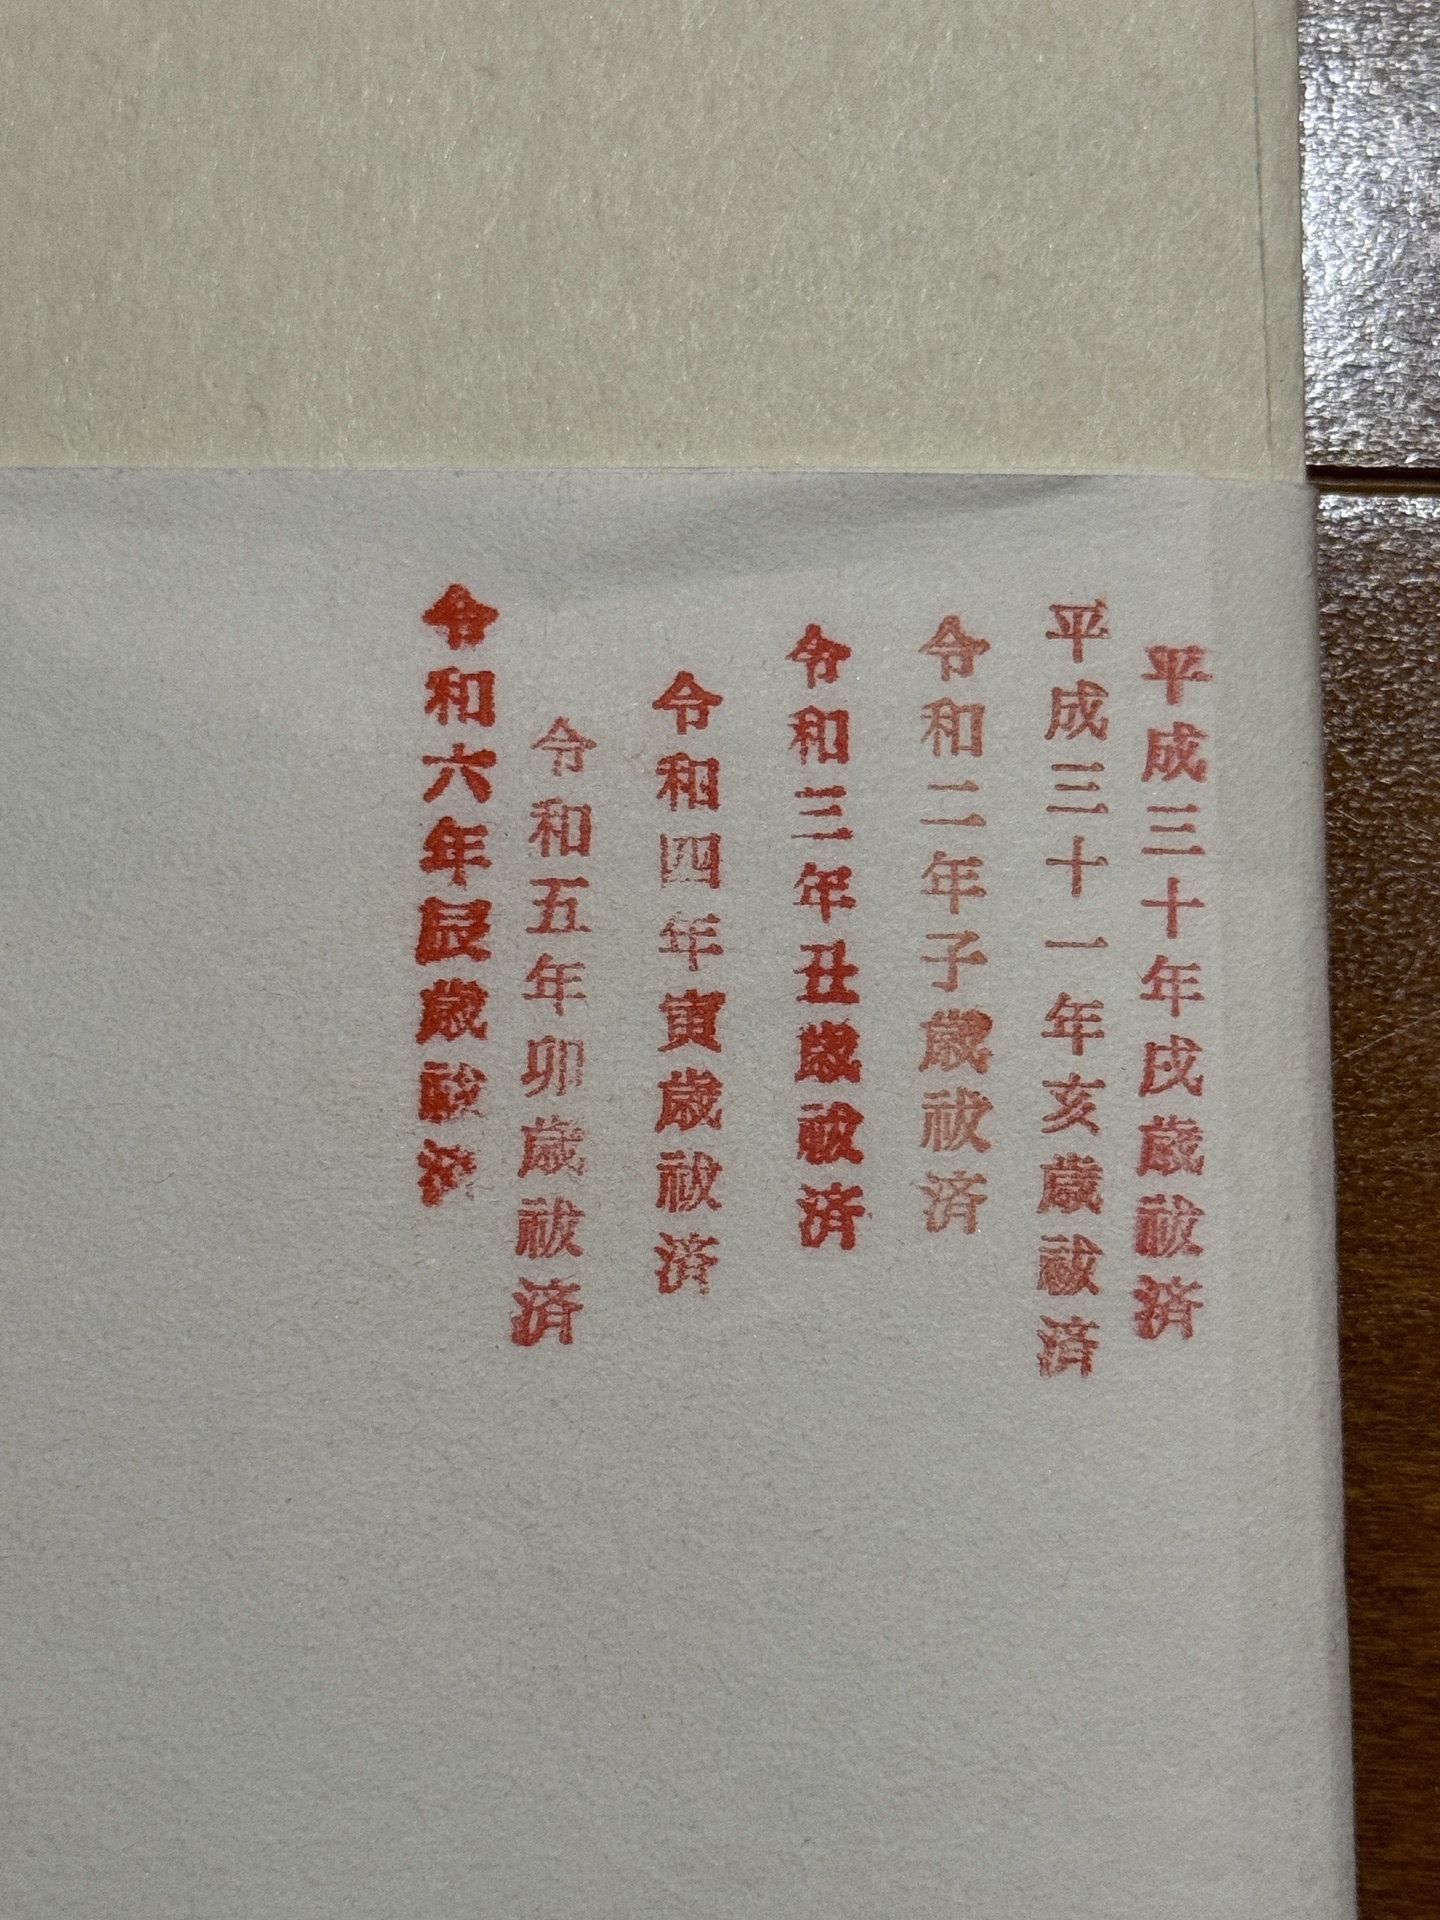 平成三十年戌歳祓済
平成三十一年亥歳祓済
令和二年子歳祓済
令和三年丑歳祓済
令和四年寅歳祓済
令和五年卯歳祓済
令和六年辰歳祓済